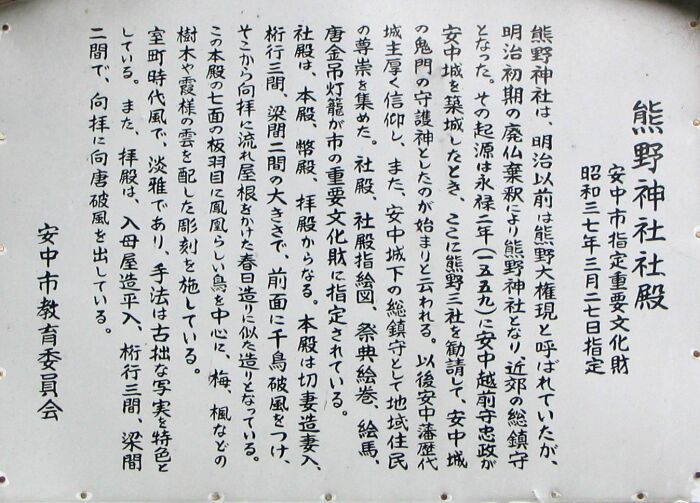 熊野神社社殿
安中市指定重要文化財
昭和三七年三月二七日指定
熊野神社は、明治以前は熊野大権現と呼ばれていたが、
明治初期の廃仏棄釈により熊野神社となり、近郊の総鎮守
となった。その起源は永禄二年(一五五九)に安中越前守忠政が
安中城を築城したとき、ここに熊野三社を勧請して、安中城
の鬼門の守護神としたのが始まりと云われる。以後安中藩歴代
城主厚く信仰し、また、安中城下の総鎮守として地域住民
の尊崇を集めた。社殿、社殿指絵図、祭典絵巻、絵馬、
唐金吊灯籠が市の重要文化財に指定されている。
社殿は、本殿、幣殿、拝殿からなる。本殿は切妻造妻入、
桁行三間、梁間二間の大きさで、前面に千鳥破風をつけ、
そこから向拝に流れ屋根をかけた春日造りに似た造りとなっている。
この本殿の七面の板羽目に鳳凰らしい鳥を中心に、梅、楓などの
樹木や霞様の雲を配した彫刻を施している。
室町時代風で、淡雅であり、手法は古拙な写実を特色と
している。また、拝殿は、入母屋造平入、桁行三間、梁間
二間で、向拝に向唐破風を出している。
安中市教育委員会